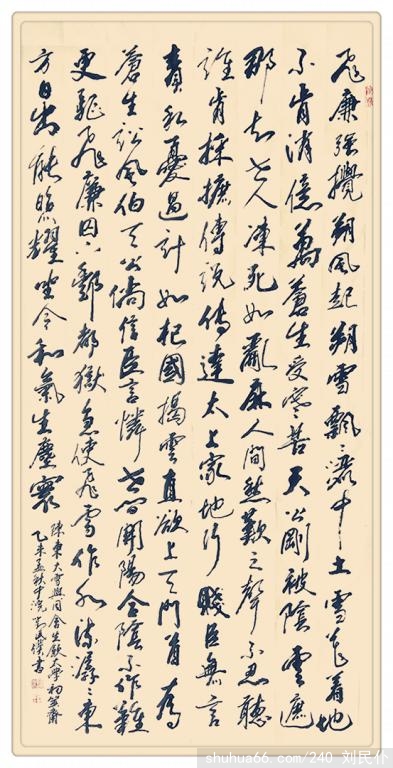 飛廉强攪朔風起朔雪飄〻灑中土雪花着地
不肯消億萬蒼生受寒苦天公剛被陰雲遮
那知世人凍死如亂麻人間愁歎之聲不忍聽
誰肯採摭傳說傳達太上家地行賤臣無言
責私憂過計如杞國揭雲直欲上天門首為
蒼生訟風伯天公倘信臣言憐世間開陽合陰不作難
更驅飛廉囚下酆都獄急使飛雪作水流潺〻東
方日出能照耀坐令和氣生塵寰
陳東大雪與同舍生飲太學初筮齋
乙未孟秋中浣劉民僕書
shuhua66.com/240 刘民仆